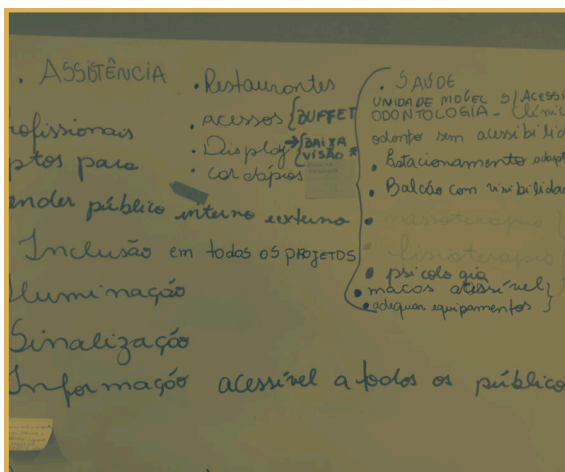 . ASSISTÊNCIA
ofissionais
ptos para
ender público interno externo
Inclusão em todos os PROJETOS
Iluminação
Sinalização
Informação acessível a todos os público
• Restaurantes
• acessos {BUFFET
• Display → {BAIXA VISÃO *
• cardápios
. SAÚDE
UNIDADE MÓVEL S/ACESSI
ODONTOLOGIA - Clínic
odonto sem acessibilid
• Estacionamento adapt
• Balcão com visibilidad
• massoterapia }
• fisioterapia
• psicologia
• macas acessível }
• adequar equipamentos }